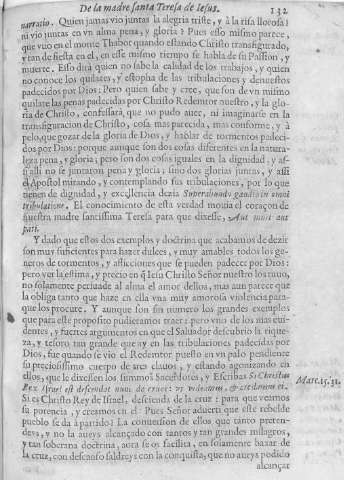 De la madre santa Teresa de Iesus. 132
narratio. Quien jamas vio juntas la alegria triste, y à la risa llorosa?
ni vio juntas en vn alma pena, y gloria? Pues esso mismo parece,
que vuo en el monte Thabor quando estando Christo transfigurado,
y tan de fiesta en el, en esse mismo tiempo se habla de su Passion, y
muerte. Esto dirà quien no sabe la calidad de los trabajos, y quien
no conoce los quilates, y estopha de las tribulaciones y denuestos
padecidos por Dios: Pero quien sabe y cree, que son de vn mismo
quilate las penas padecidas por Christo Redemtor nuestro, y la glo-
ria de Christo, confessarà, que no pudo auer, ni imaginarse en la
transfiguracion de Christo, cosa mas parecida, mas conforme, y à
pelo, que gozar de la gloria de Dios, y hablar de tormentos padeci-
dos por Dios: porque aunque son dos cosas diferentes en la natura-
leza pena, y gloria; pero son dos cosas iguales en la dignidad, y as-
si alli no se juntaron pena y gloria, sino dos glorias juntas, y assi
el Apostol mirando, y contemplando sus tribulaciones, por lo que
tienen de dignidad, y excelencia dezia Superabundo gaudio in omni
tribulatione. El conocimiento de esta verdad mouia el coraçon de
nuestra madre santissima Teresa para que dixesse, Aut mori aut
pati.
Y dado que estos dos exemplos y doctrina que acabamos de dezir
son muy suficientes para hazer dulces, y muy amables todos los ge-
neros de tormentos, y aflicciones que se pueden padecer por Dios:
pero ver la estima, y precio en q̃ Iesu Christo Señor nuestro los tuuo,
no solamente persuade al alma el amor dellos, mas aun parece que
la obliga tanto que haze en ella vna muy amorosa violencia para
que los procure. Y aunque son sin numero los grandes exemplos
que para este proposito pudieramos traer: pero vno de los mas eui-
dentes, y fuertes argumentos en que el Saluador descubrio la rique-
za, y tesoro tan grande que ay en las tribulaciones padecidas por
Dios, fue quando se vio el Redemtor puesto en vn palo pendiente
su preciosissimo cuerpo de tres clauos, y estando agonizando en
ellos, que le dixessen los summos Sacerdotes, y Escribas Si Christus
Rex Israel est descendat nunc de cruce: vt videamus, & credamus ei.
Marc. 15. 32.
Si es Christo Rey de Israel, descienda de la cruz: para que veamos
su potencia, y creamos en el. Pues Señor aduerti que este rebelde
pueblo se da à partido? La conuersion de ellos que tanto preten-
deys, y no la aueys alcançado con tantos y tan grandes milagros,
y tan soberana doctrina, aora se os facilita, en solamente baxar de
la cruz, con descanso saldreys con la conquista, que no aueys podido
alcançar